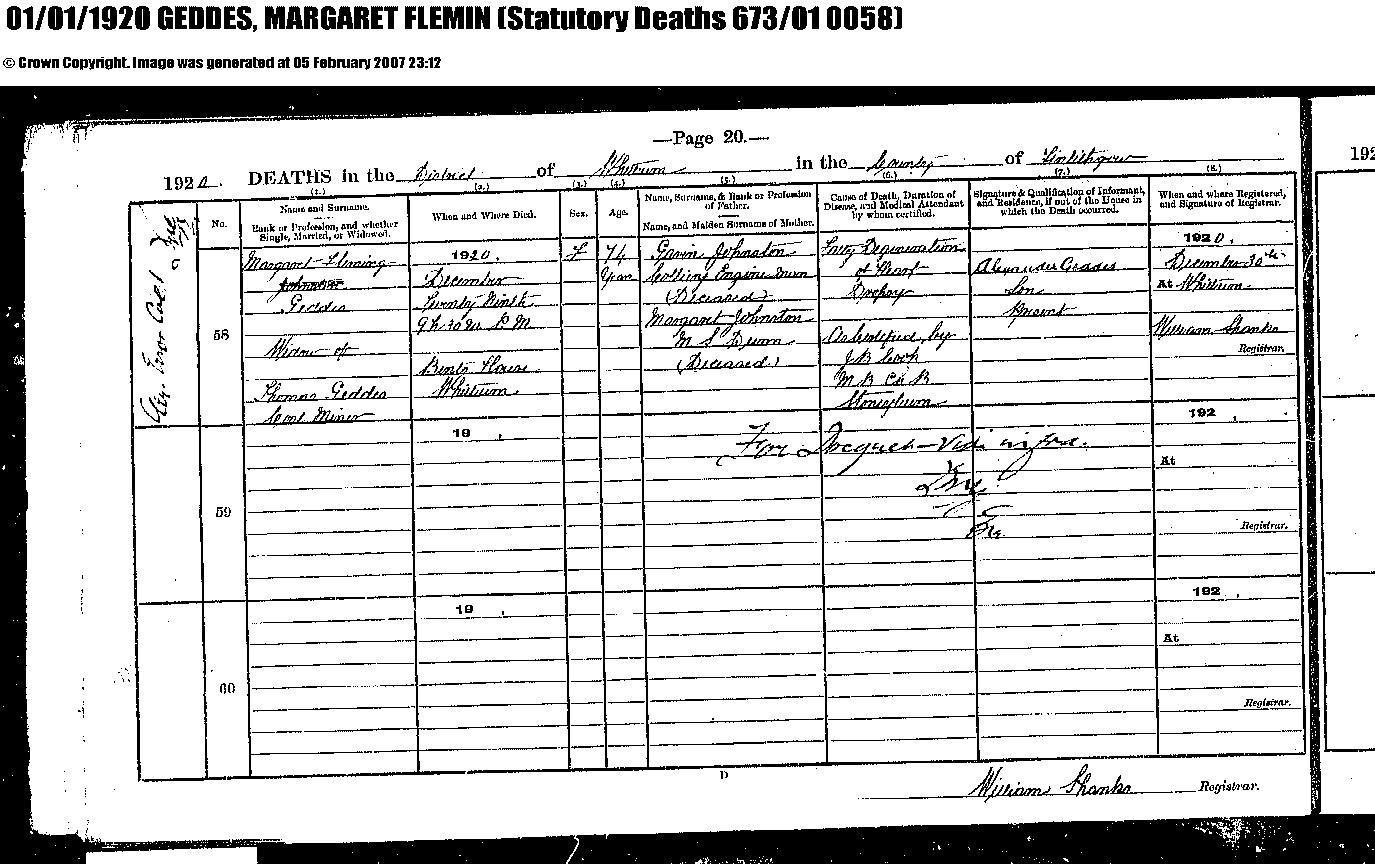 01/01/1920 GEDDES, MARGARET FLEMIN (Statutory Deaths 673/01 0058)
© Crown Copyright. Image was generated at 05 February 2007 23:12
—Page 20.—
1920. DEATHS in the District of Whitburn in the County of Linlithgow
(1.) (2.) (3.) (4.) (5.) (6.) (7.) (8.)
No.
Name and Surname.
Rank or Profession, and whether
Single, Married, or Widowed.
When and Where Died.
Sex.
Age.
Name, Surname, & Rank or Profession
of Father.
Name, and Maiden Surname of Mother.
Cause of Death, Duration of
Disease, and Medical Attendant
by whom certified.
Signature & Qualification of Informant,
and Residence, if out of the House in
which the Death occurred.
When and where Registered,
and Signature of Registrar.
58
Margaret Fleming
Johnston
Geddes
Widow of
Thomas Geddes
Coal Miner
1920.
December
Twenty Ninth
9h. 30m. P.M.
Bents House
Whitburn
F
74
Years
Gavin Johnston
Colliery Engineman
(Deceased)
Margaret Johnston
M.S. Dunn
(Deceased)
Fatty Degeneration
of Heart
Dropsy
As Certified by
J B Cook
M B Ch B
Stoneyburn
Alexander Geddes
Son
Present
1920.
December 30th
At Whitburn
William Shanks
Registrar.
59
19 ,
192 ,
At
Registrar.
60
19 ,
192 ,
At
Registrar.
D
William Shanks Registrar.
192